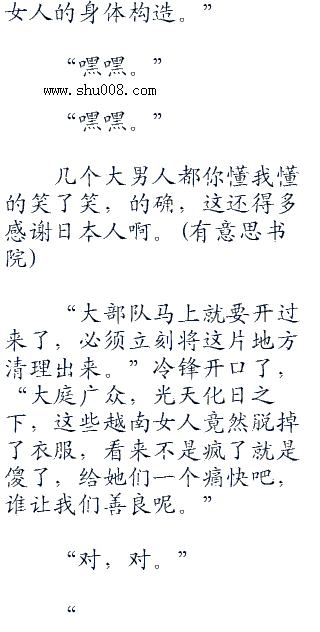 女人的身体构造。”
“嘿嘿。”
www.shu008.com
“嘿嘿。”
几个大男人都你懂我懂
的笑了笑，的确，这还得多
感谢日本人啊。(有意思书
院)
“大部队马上就要开过
来了，必须立刻将这片地方
清理出来。”冷锋开口了，
“大庭广众，光天化日之
下，这些越南女人竟然脱掉
了衣服，看来不是疯了就是
傻了，给她们一个痛快吧，
谁让我们善良呢。”
“对，对。”
“